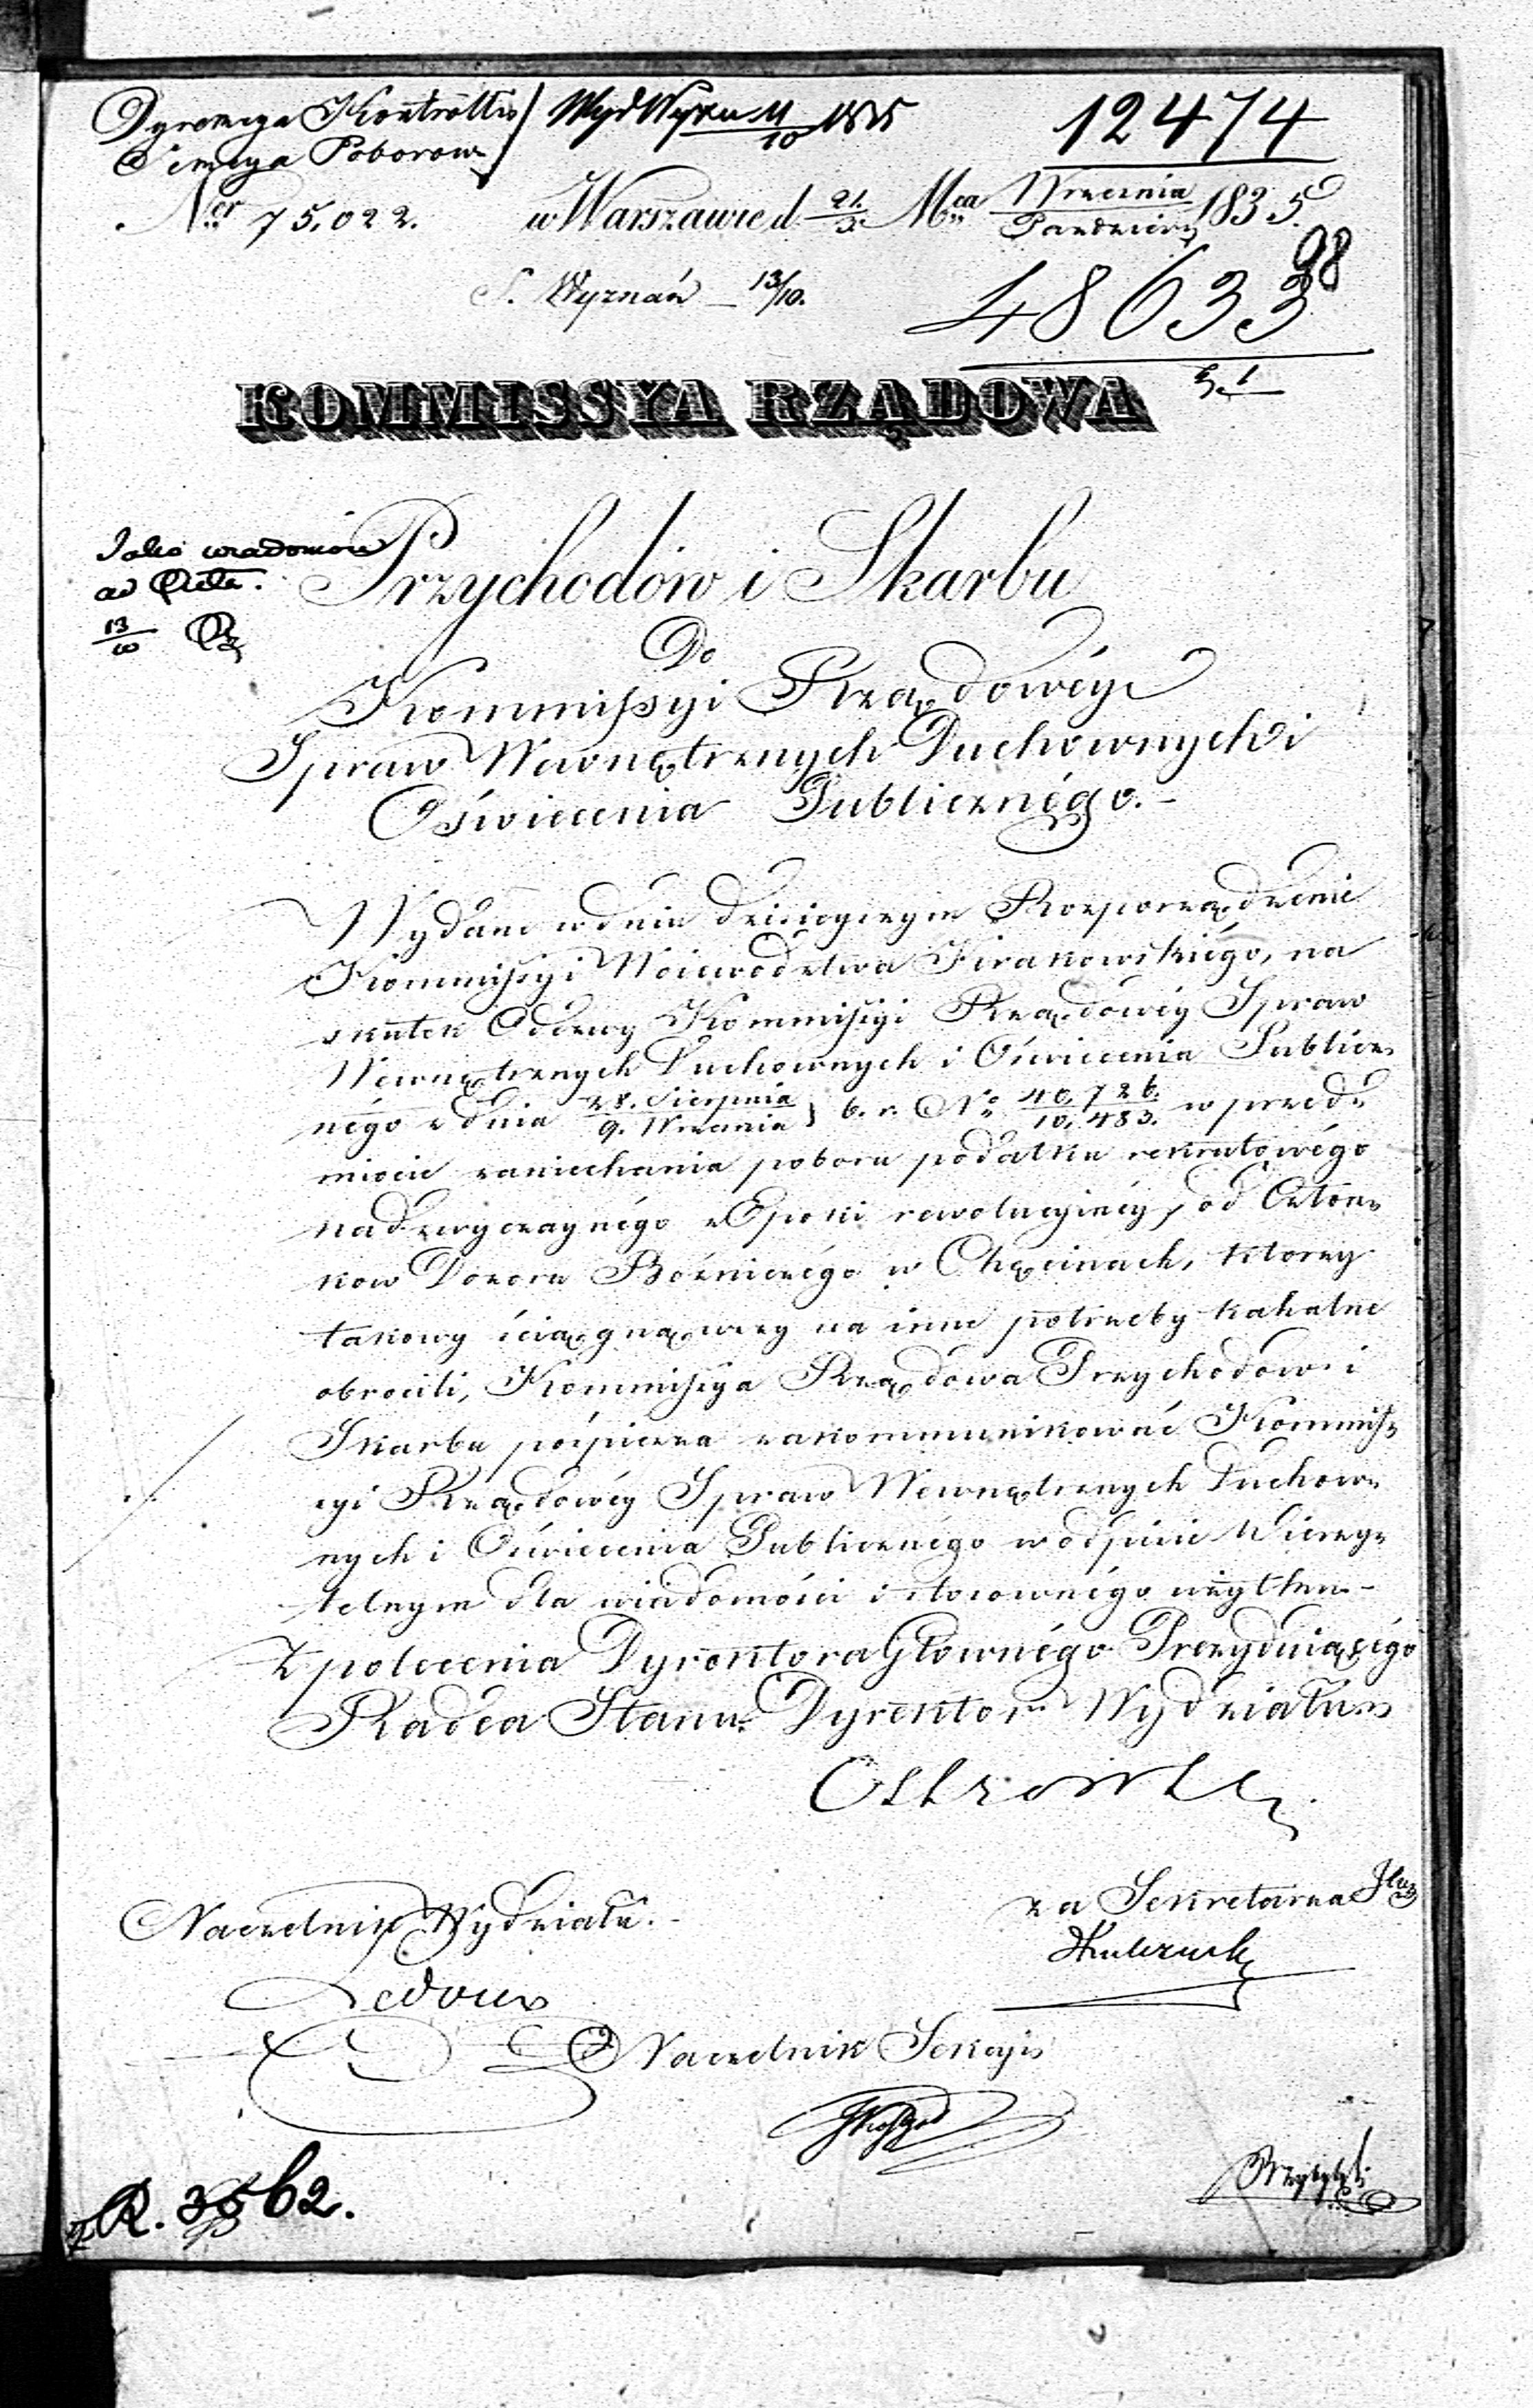 Dyrekcya Kontrolli
Sekcya Poborow.
Wyd Wyzn 11/10 1835
12474
Ner 75,022.
w Warszawie d 21/3 Mca Września/Październ 1835.
98
S. Wyznań — 13/10.
48633
KOMMISSYA RZĄDOWA
Jako wiadomość
ad acta.
13/10
Przychodów i Skarbu
Do
Kommissyi Rządowéy
Spraw Wewnętrznych Duchownych i
Oświecenia Publicznégo.–
Wydane w dniu dzisieyszym Rozporządzenie
Kommissyi Woiewodztwa Krakowskiégo, na
skutek Odezwy Kommissyi Rządowéy Spraw
Wewnętrznych Duchownych i Oświecenia Publicz-
négo z dnia 28. Sierpnia/9. Września b. r. No 40,726./10,483. w przed-
miocie zaniechania poboru podatku rekrutowégo
nadzwyczaynégo z Epoki rewolucyinéy, od Człon-
kow Dozoru Bóżniczégo w Chęcinach, ktorzy
takowy ściągnąwszy na inne potrzeby kahalne
obrocili, Kommissya Rządowa Przychodów i
Skarbu pośpiesza zakommunikować Kommis-
syi Rządowéy Spraw Wewnętrznych Duchow-
nych i Oświecenia Publicznégo w odpisie Wierzy-
telnym dla wiadomości i stosownégo użytku.–
Z polecenia Dyrektora Głownégo Prezyduiącégo
Radca Stanu Dyrektor Wydziału
Ostrowski
Naczelnik Wydziału.–
za Sekretarza Jlnego
Ledoux
Naczelnik Sekcyi
R. 3562.